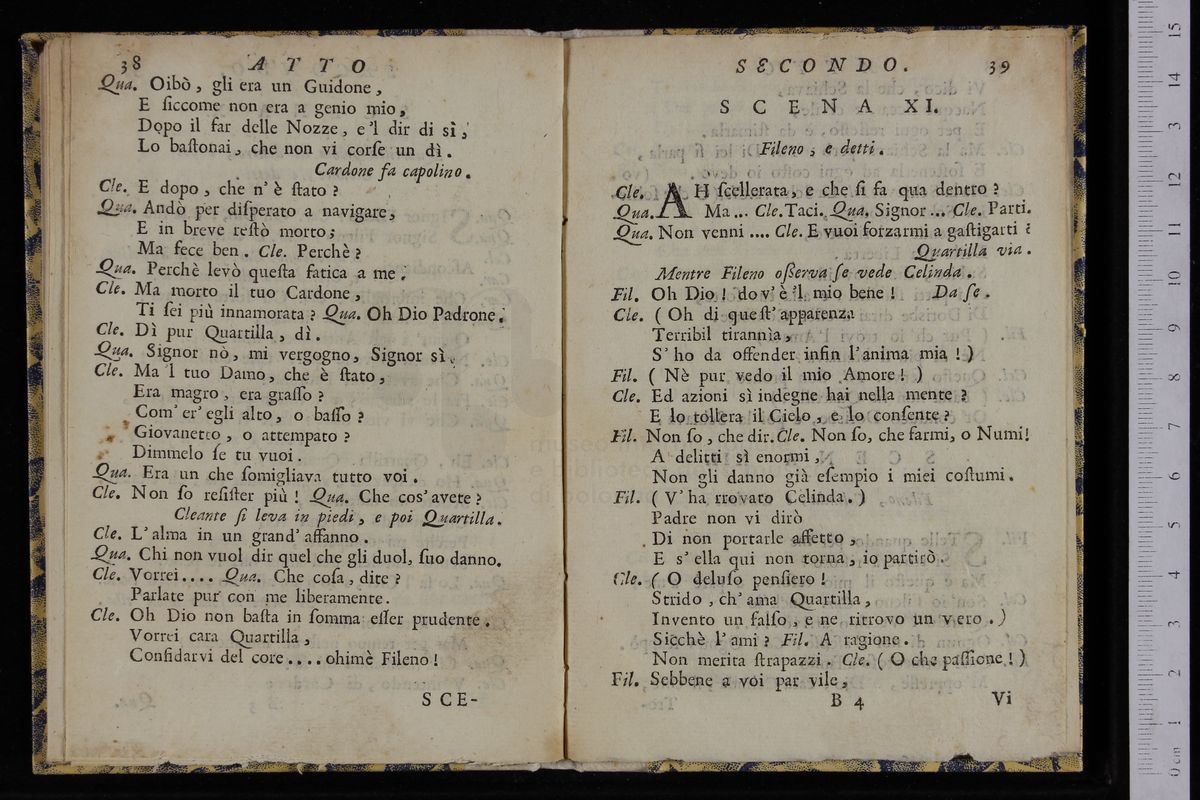 38 A T T O
Qua. Oibò, gli era un Guidone,
E ſiccome non era a genio mio,
Dopo il far delle Nozze, e 'l dir di sì,
Lo baſtonai, che non vi corſe un dì.
Cardone fa capolino.
Cle. E dopo, che n' è ſtato?
Qua. Andò per diſperato a navigare,
E in breve reſtò morto;
Ma fece ben. Cle. Perchè?
Qua. Perchè levò queſta fatica a me.
Cle. Ma morto il tuo Cardone,
Ti ſei più innamorata? Qua. Oh Dio Padrone.
Cle. Dì pur Quartilla, dì.
Qua. Signor nò, mi vergogno, Signor sì.
Cle. Ma 'l tuo Damo, che è ſtato,
Era magro, era graſſo?
Com' er' egli alto, o baſſo?
Giovanetto, o attempato?
Dimmelo ſe tu vuoi.
Qua. Era un che ſomigliava tutto voi.
Cle. Non ſo reſiſter più! Qua. Che cos' avete?
Cleante ſi leva in piedi, e poi Quartilla.
Cle. L' alma in un grand' affanno.
Qua. Chi non vuol dir quel che gli duol, ſuo danno.
Cle. Vorrei.... Qua. Che coſa, dite?
Parlate pur con me liberamente.
Cle. Oh Dio non baſta in ſomma eſſer prudente.
Vorrei cara Quartilla,
Confidarvi del core.... ohimè Fileno!
SCE-
SECONDO. 39
SCENA XI.
Fileno, e detti.
Cle. AH ſcellerata, e che ſi fa qua dentro?
Qua. Ma... Cle. Taci. Qua. Signor... Cle. Parti.
Qua. Non venni.... Cle. E vuoi forzarmi a gaſtigarti?
Quartilla via.
Mentre Fileno oſſerva ſe vede Celinda.
Fil. Oh Dio! dov' è 'l mio bene! Da ſe.
Cle. (Oh di queſt' apparenza
Terribil tirannìa,
S' ho da offender infin l'anima mia!)
Fil. (Nè pur vedo il mio Amore!)
Cle. Ed azioni sì indegne hai nella mente?
E lo tollera il Cielo, e lo conſente?
Fil. Non ſo, che dir. Cle. Non ſo, che farmi, o Numi!
A delitti sì enormi,
Non gli danno già eſempio i miei coſtumi.
Fil. (V' ha trovato Celinda.)
Padre non vi dirò
Di non portarle affetto,
E s' ella qui non torna, io partirò.
Cle. (O deluſo penſiero!
Strido, ch' ama Quartilla,
Invento un falſo, e ne ritrovo un vero.)
Sicchè l' ami? Fil. A ragione.
Non merita ſtrapazzi. Cle. (O che paſſione!)
Fil. Sebbene a voi par vile,
B 4 Vi